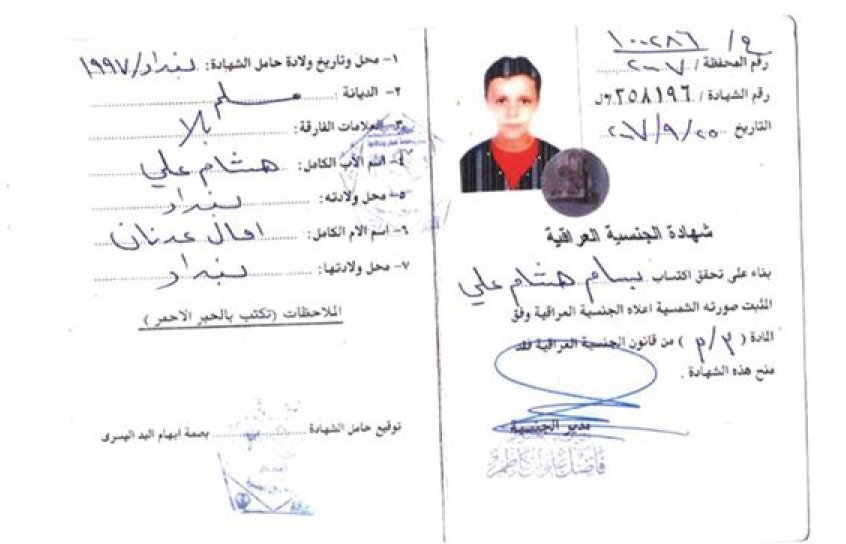 ج/ ١٠٠٢٨٦
رقم المحفظة / ٢٠٠٧
رقم الشهادة / ٢٥٨١٩٦
التاريخ ٢٠٠٧/٩/٢٥
شهادة الجنسية العراقية
بناء على تحقق اكتساب بسام هشام علي
المثبت صورته الشمسية اعلاه الجنسية العراقية وفق
المادة ( ٣/م ) من قانون الجنسية العراقية فقد
منح هذه الشهادة .
مدير الجنسية
فاضل علوان كاظم
١- محل وتاريخ ولادة حامل الشهادة: بغداد/١٩٩٧
٢- الديانة : مسلم
٣- العلامات الفارقة: بلا
٤- اسم الأب الكامل: هشام علي
٥- محل ولادته: بغداد
٦- اسم الام الكامل: امال عدنان
٧- محل ولادتها: بغداد
الملاحظات (تكتب بالحبر الاحمر )
توقيع حامل الشهادة
بصمة ابهام اليد اليسرى